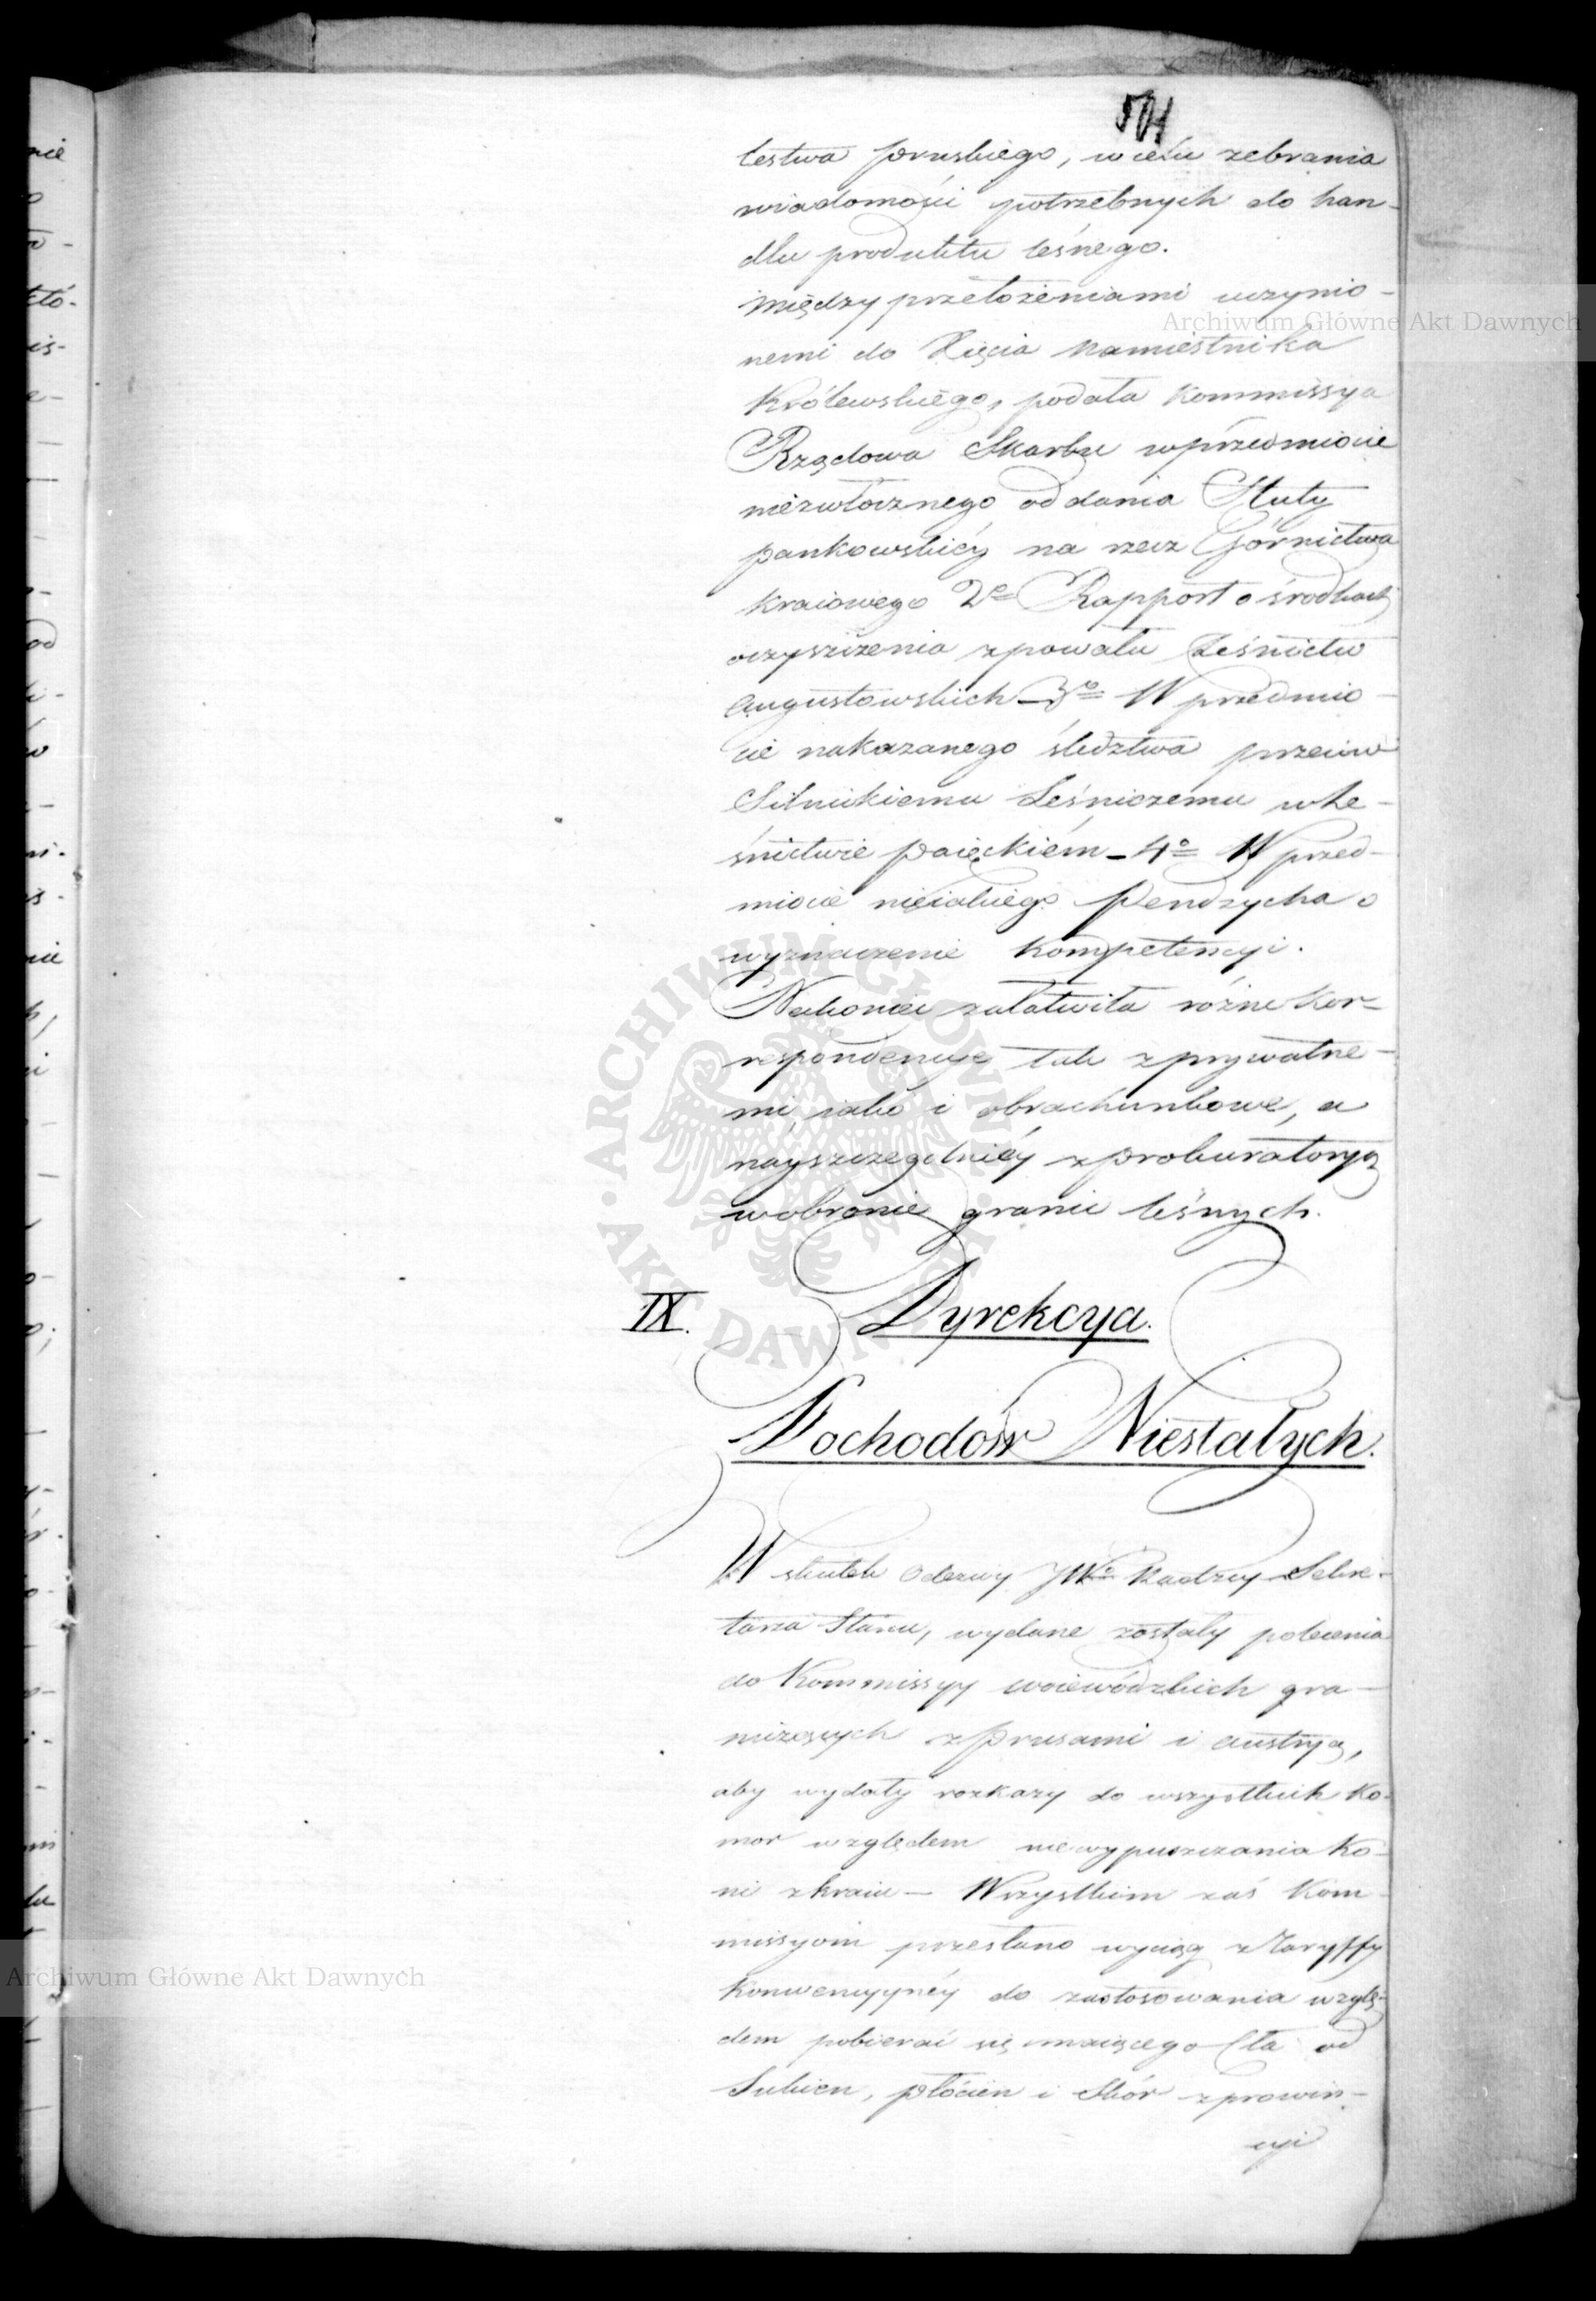 lestwa pruskiego, w celu zebrania
wiadomości potrzebnych do han-
dlu produktu leśnego.
Między przełożeniami uczynio-
nemi do Xięcia Namiestnika
Królewskiego, podała Kommissya
Rządowa Skarbu w przedmiocie
niezwłocznego oddania Huty
pankowskiéy na rzecz Górnictwa
kraiowego 2e Rapport o środkach
oczyszczenia z powału Leśnictw
Augustowskich - 3o W przedmio-
cie nakazanego śledztwa przeciw
Leśniczemu w Le-
śnictwie Paięckiém - 4o W przed-
miocie nieiakiego Pendzycha o
wyznaczenie kompetencyi.
Nakoniec załatwiła różne kor-
respondencye tak z prywatne-
mi, iako i obrachunkowe, a
nayszczególniéy z prokuratoryą
w obronie granic leśnych.
IX. Dyrekcya.
Dochodów Niestałych.
W skutek odezwy JWo Radzcy Sekre-
tarza Stanu, wydane zostały polecenia
do Kommissyy woiewódzkich gra-
niczących z Prusami i Austryą,
aby wydały rozkazy do wszystkich Ko-
mor względem niewypuszczania Ko-
ni z kraiu - Wszystkim zaś Kom-
missyom przesłano wyciąg z Taryffy
konwencyynéy do zastosowania wzglę-
dem pobierać się maiącego Cła od
Sukien, płócien i Skór z prowin-
cyi
Archiwum Główne Akt Dawnych
Archiwum Główne Akt Dawnych
ARCHIWUM GŁÓWNE AKT DAWNYCH